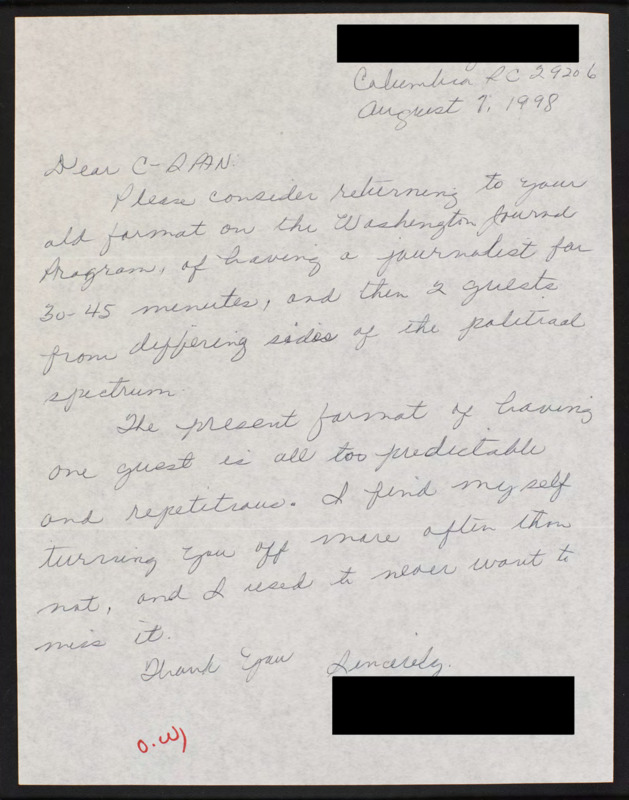 Columbia SC 29206
August 7, 1998
Dear C-SPAN:
Please consider returning to your
old format on the Washington Journal
Program, of having a journalist for
30-45 minutes, and then 2 guests
from differing sides of the political
spectrum.
The present format of having
one guest is all too predictable
and repetitious. I find myself
turning you off more often than
not, and I used to never want to
miss it.
Thank You Sincerely,
O.W)